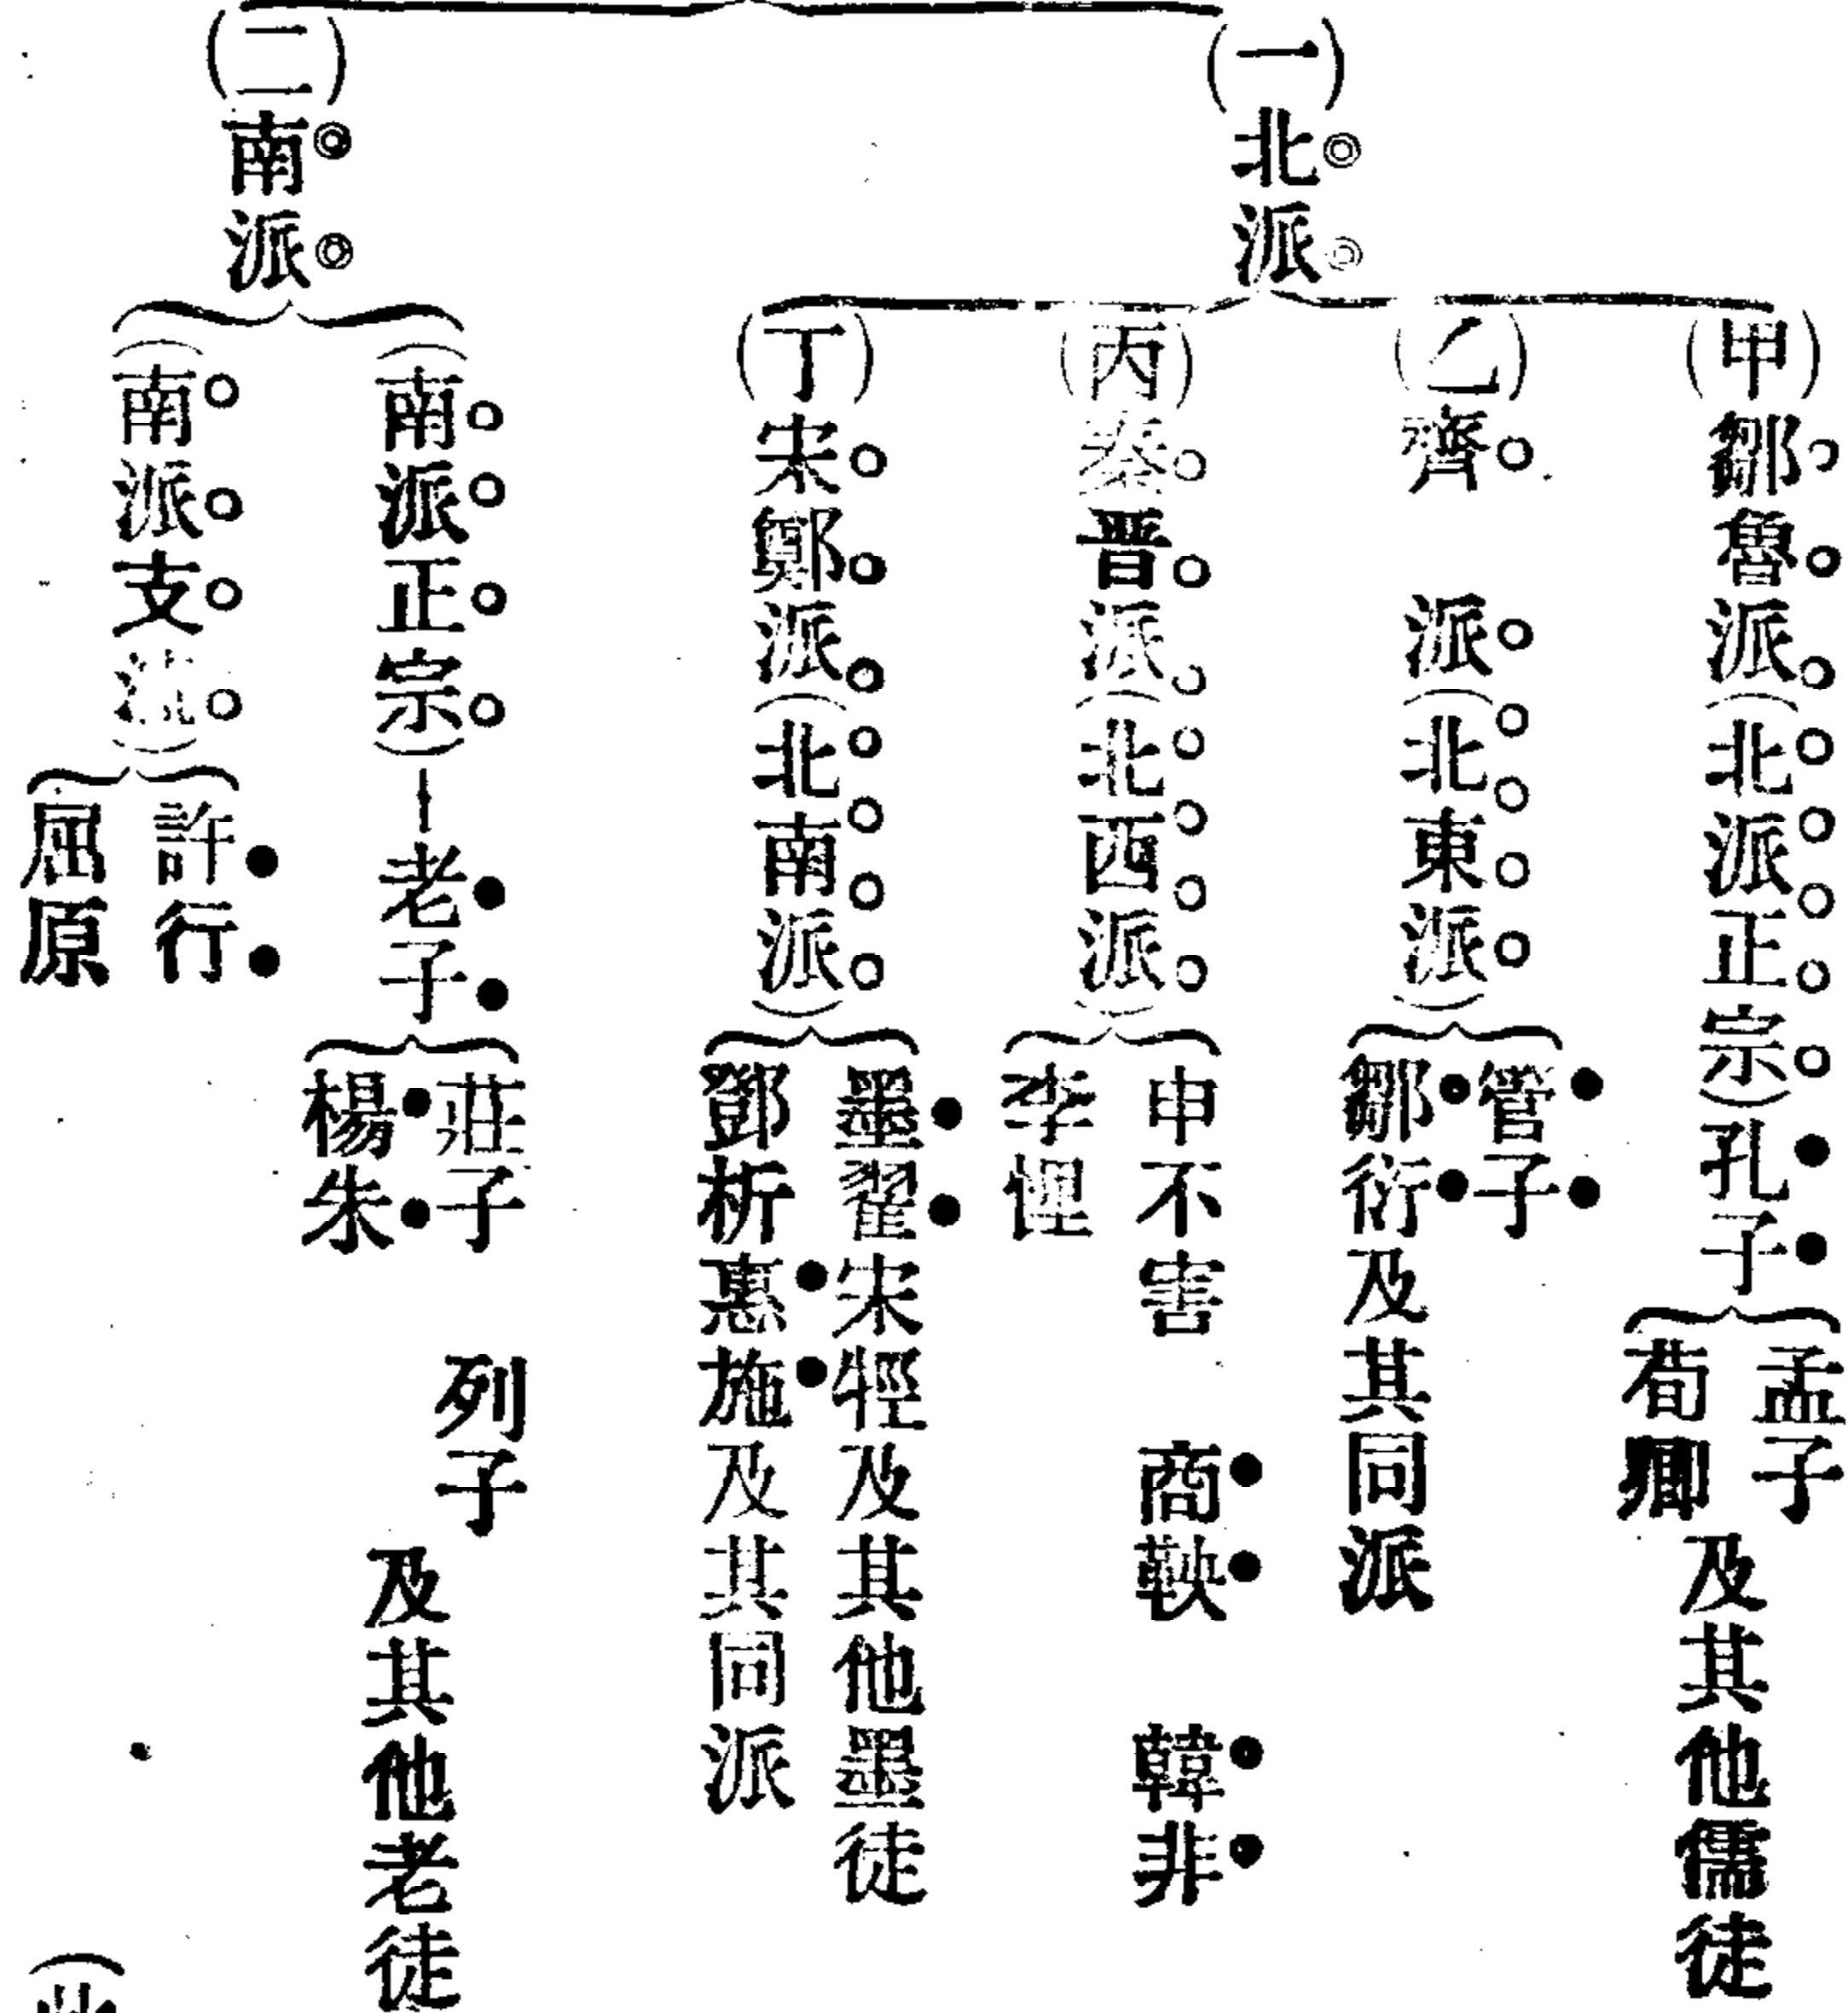 (一)北派
(甲)鄒魯派(北派正宗)孔子
孟子
荀卿
及其他儒徒
(乙)齊派(北東派)
管子
鄒衍及其同派
(丙)秦晋派(北西派)
申不害 商鞅 韓非
李悝
(丁)宋鄭派(北南派)
墨翟宋牼及其他墨徒
鄧析惠施及其同派
(二)南派
(南派正宗)—老子
莊子 列子
楊朱
及其他老徒
(南派支流)
許行
屈原